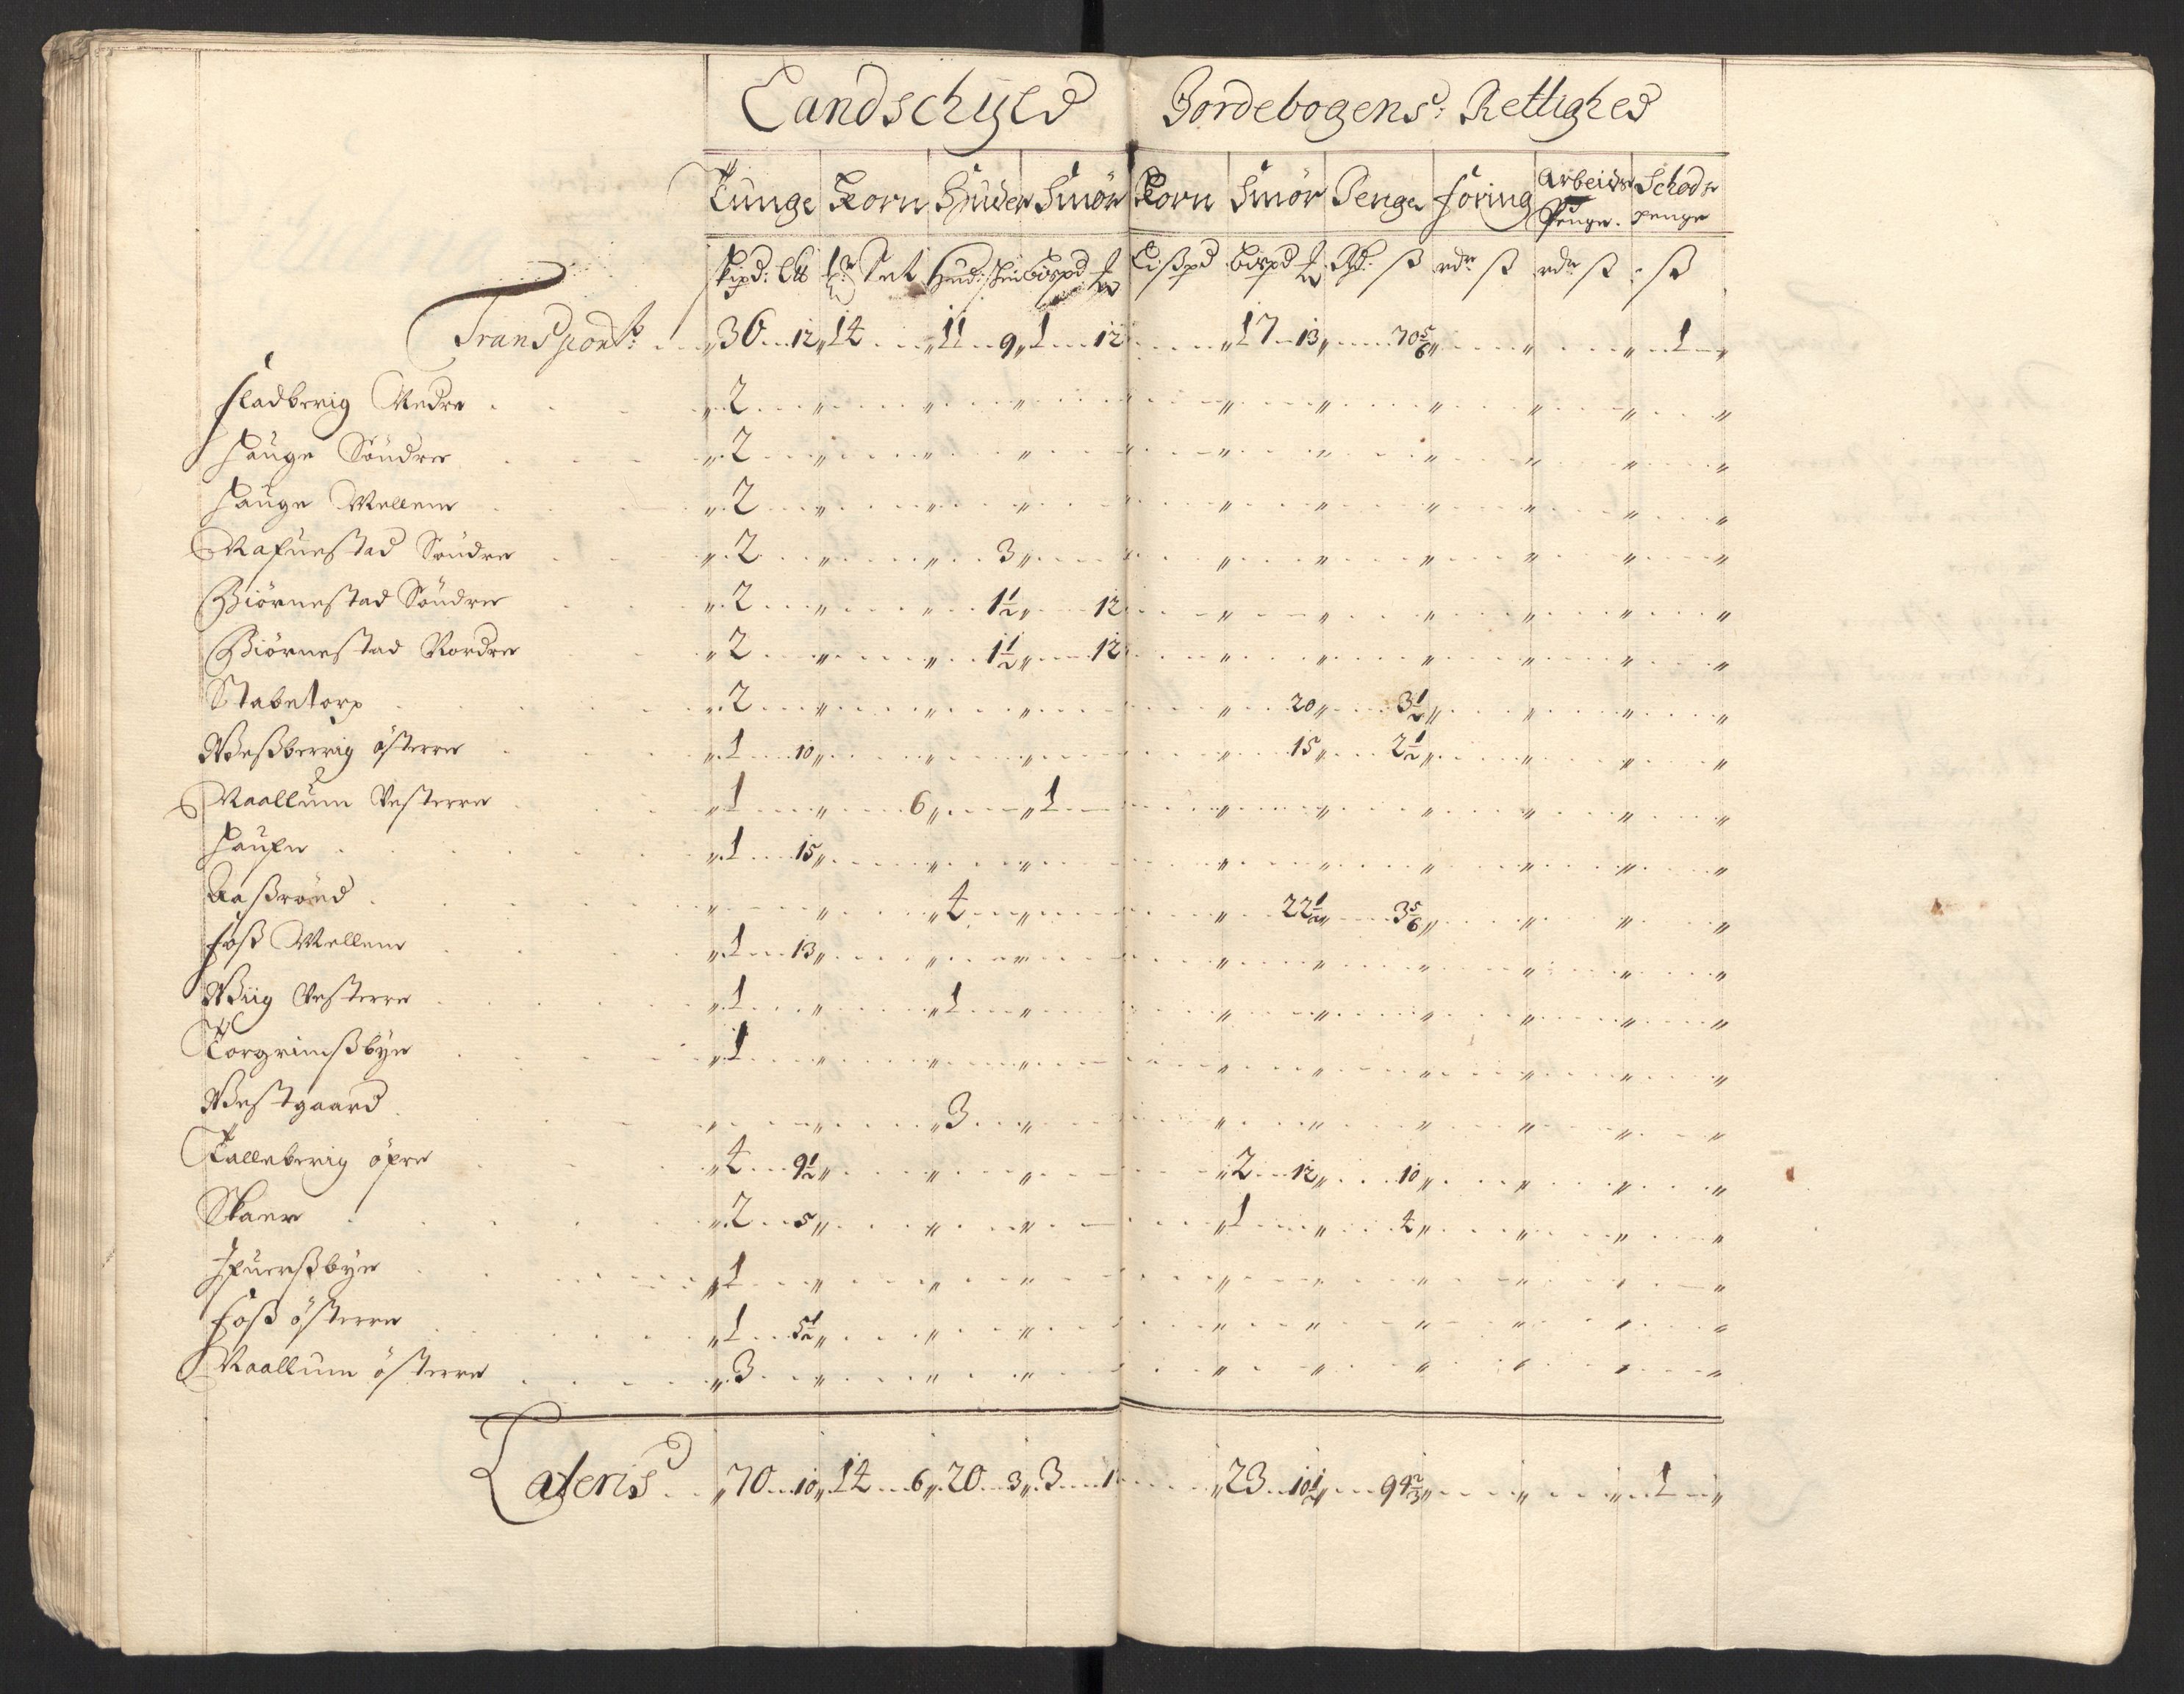 Landschyld Jordebogens Rettighed
Tunge Korn Huder Smör Korn Smör Penge foring Arbeids Penge. Schods penge
skpd: Lb Set Hud: skin bispd Lißpd bispd Rd. ß rdr ß rdr ß ß
Transport: 36 12 14 11 9 1 12 17 13 70 5/6 1
fladberig Nedre 2
Hauge Söndre 2
Hauge Mellem 2
Nafuestad Söndre 2 3
Biörnestad Söndre 2 1 1/2 12
Biörnestad Nordre 2 1 1/2 12
Stabetorp 2 20 3 1/2
Weßberrig österre 1 10 15 2 1/2
Maallum Vesterre 1 6 1
Haufn 1 15
Aaßröed 4 22 1/2 3 5/6
foß Mellem 1 13
Wiig Vesterre 1 1
Torgrimßbye 1
Westgaard 3
Kalleberig öfre 4 9 1/2 2 12 10
Skaer 2 5 1 4
Ifuerßbye 1
foß österre 1 5 1/2
Maallum österre 3
Lateris 70 10 14 6 20 3 3 1 23 10 1/2 94 2/3 1